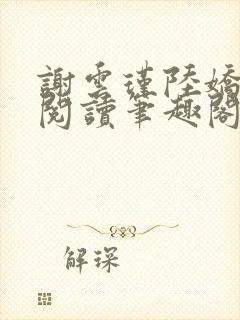 謝雲瑾陸嬌
閱讀筆趣閣
解琛